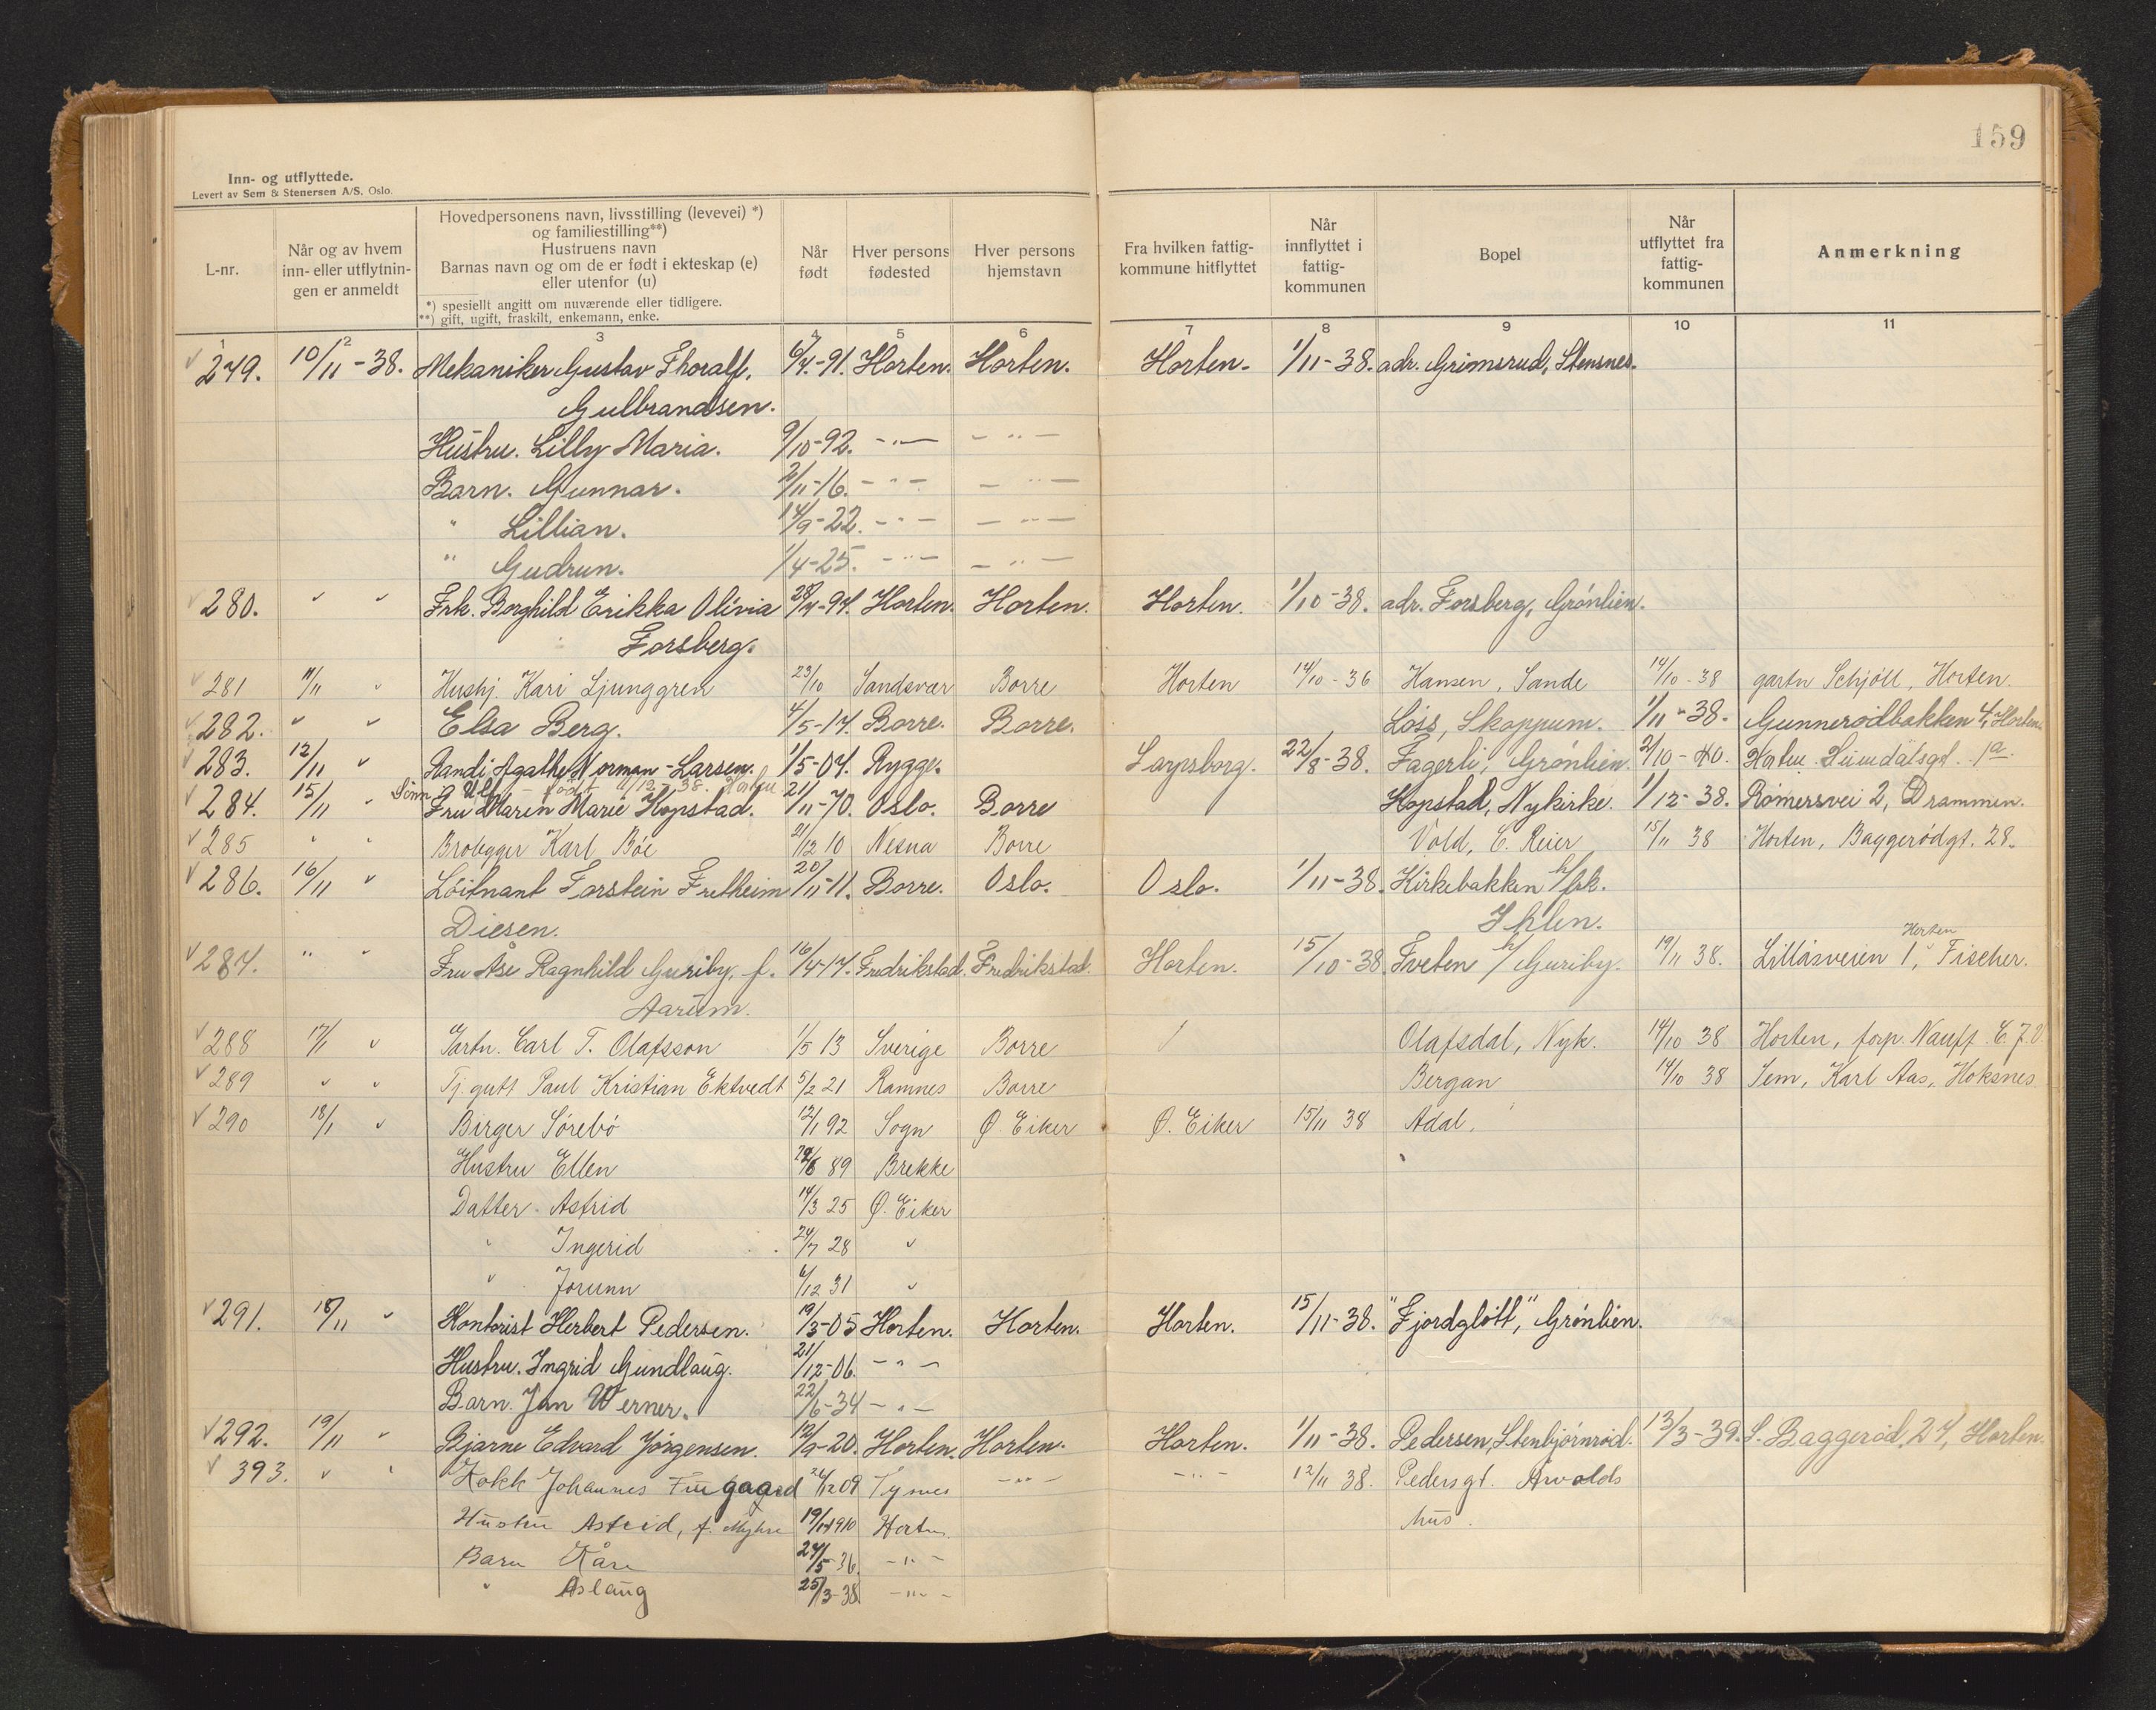 159
Inn- og utflyttede.
Levert av Sem & Stenersen A/S, Oslo.
L-nr. Når og av hvem inn- eller utflytnin- gen er anmeldt Hovedpersonens navn, livsstilling (levevei) *) og familiestilling**) Hustruens navn Barnas navn og om de er født i ekteskap (e) eller utenfor (u) *) spesiellt angitt om nuværende eller tidligere. **) gift, ugift, fraskilt, enkemann, enke. Når født Hver persons fødested Hver persons hjemstavn Fra hvilken fattig- kommune hitflyttet Når innflyttet i fattig- kommunen Bopel Når utflyttet fra fattig- kommunen Anmerkning
1 2 3 4 5 6 7 8 9 10 11
279. 10/11-38. Mekaniker Gustav Thoralf. 6/7-91. Horten. Horten. Horten. 1/11-38. adr. Grimsrud, Stensnes.
Gulbrandsen.
Hustru. Lilly Maria. 9/10-92. -"- -"-
Barn. Gunnar. 2/11-16. -"- -"-
" Lillian. 14/9-22. -"- -"-
" Gudrun. 1/4-25. -"- -"-
280. " " Frk. Borghild Erikka Olivia 28/7-97. Horten. Horten. Horten. 1/10-38. adr. Forsberg, Grönlien.
Forsberg.
281 11/11 " Hushj. Kari Ljunggren 23/10 Sandsvær Borre Horten 14/10-36 Hansen, Sande 14/10-38 gartn Schjöll, Horten
282. " " Elsa Berg. 4/5-17. Borre. Borre. Löss, Skoppum. 1/11-38. Gunnerödbakken 4, Horten
283. 12/11 " Randi Agathe Norman-Larsen. 1/5-07. Rygge. Sarpsborg. 22/8-38. Fagerli, Grönlien. 2/10-40. Horten 1a.
Sönn Ulf - födt 38. Horten
284. 15/11 " Fru Maren Marie Hopstad. 21/11-70. Oslo. Borre Hopstad, Nykirke. 1/12-38. Römersvei 2, Drammen.
285 " " Brobygger Karl Böe 21/12 10 Nesna Borre Vold, C. Reier 15/11 38 Horten, Baggerødgt. 28.
286. 16/11 " Löitnant Torstein Fretheim 20/11-11. Borre. Oslo. Oslo. 1/11-38. Kirkebakken h/frk.
Diesen. Ihlen.
287. " " Fru Åse Ragnhild Guriby, f. 16/4-17. Fredrikstad. Fredrikstad. Horten. 15/10-38 Tveten h/ Guriby. 19/11 38. Lillåsveien 1, Fischer. Horten
Aarum.
288 17/1 " Gartn. Carl T. Olafsson 1/5 13 Sverige Borre / Olafsdal, Nyk. 14/10 38 Horten,
289 " " Tj.gutt Paul Kristian Ektvedt 5/2 21 Ramnes Borre Bergan 14/10 38 Sem, Karl Aas, Hoksnes
290 18/1 " Birger Sörebö 12/1 92 Sogn Ø. Eiker Ø. Eiker 15/11 38 Adal.
Hustru Ellen 89 Brekke
Datter Astrid 14/3 25 Ø. Eiker
" Ingerid 24/7 28 "
" Jorunn 6/12 31 "
291. 18/11 " Kontorist Herbert Pedersen. 19/3-05 Horten. Horten. Horten. 15/11-38. "Fjordglött", Grönlien.
Hustru. Ingrid Gundlaug. 21/12-06. -"-
Barn. Jan Werner. 22/6-34 -"-
292. 19/11 " Bjarne Edvard Jörgensen. 12/9-20. Horten. Horten. Horten. 1/11-38. Pedersen, Stenbjörnröd. 13/3-39. S. Baggeröd, 27, Horten.
393. " " Kokk Johannes 09 -"- -"- 12/11 38. Pedersgt. Arvolds
Hustru Astrid, f. Myhre 1910 Horten hus.
Barn Kåre 24/5-36. -"-
" Aslaug 25/3-38. -"-